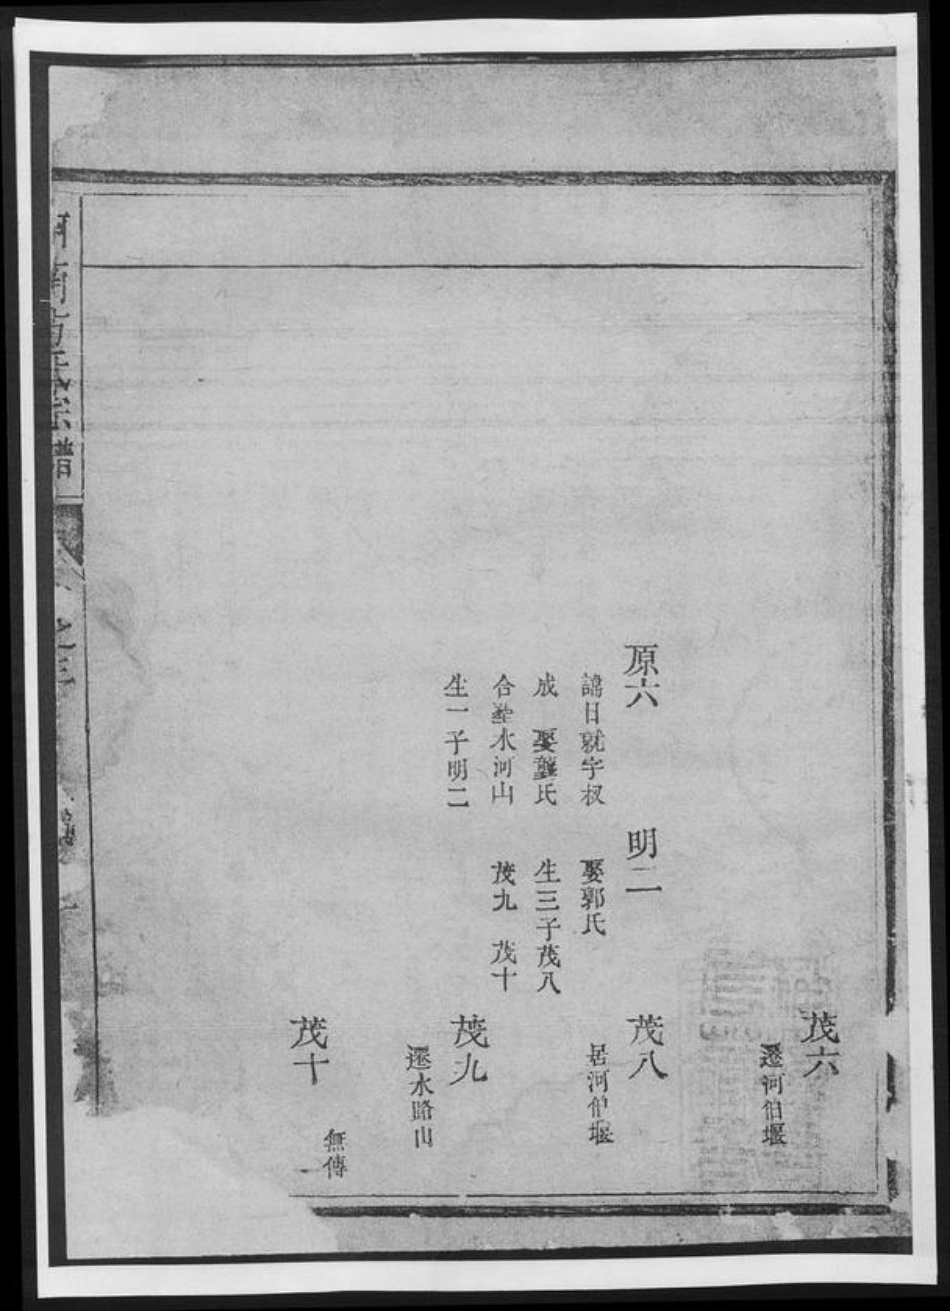 茂六
遷河伯堰
原六
諱日就字叔
成　娶龔氏
合塟水河山
生一子明二
明二
娶郭氏
生三子茂八
茂九　茂十
茂八
居河伯堰
茂九
遷水路山
茂十
無傳
河南方氏宗譜
之三